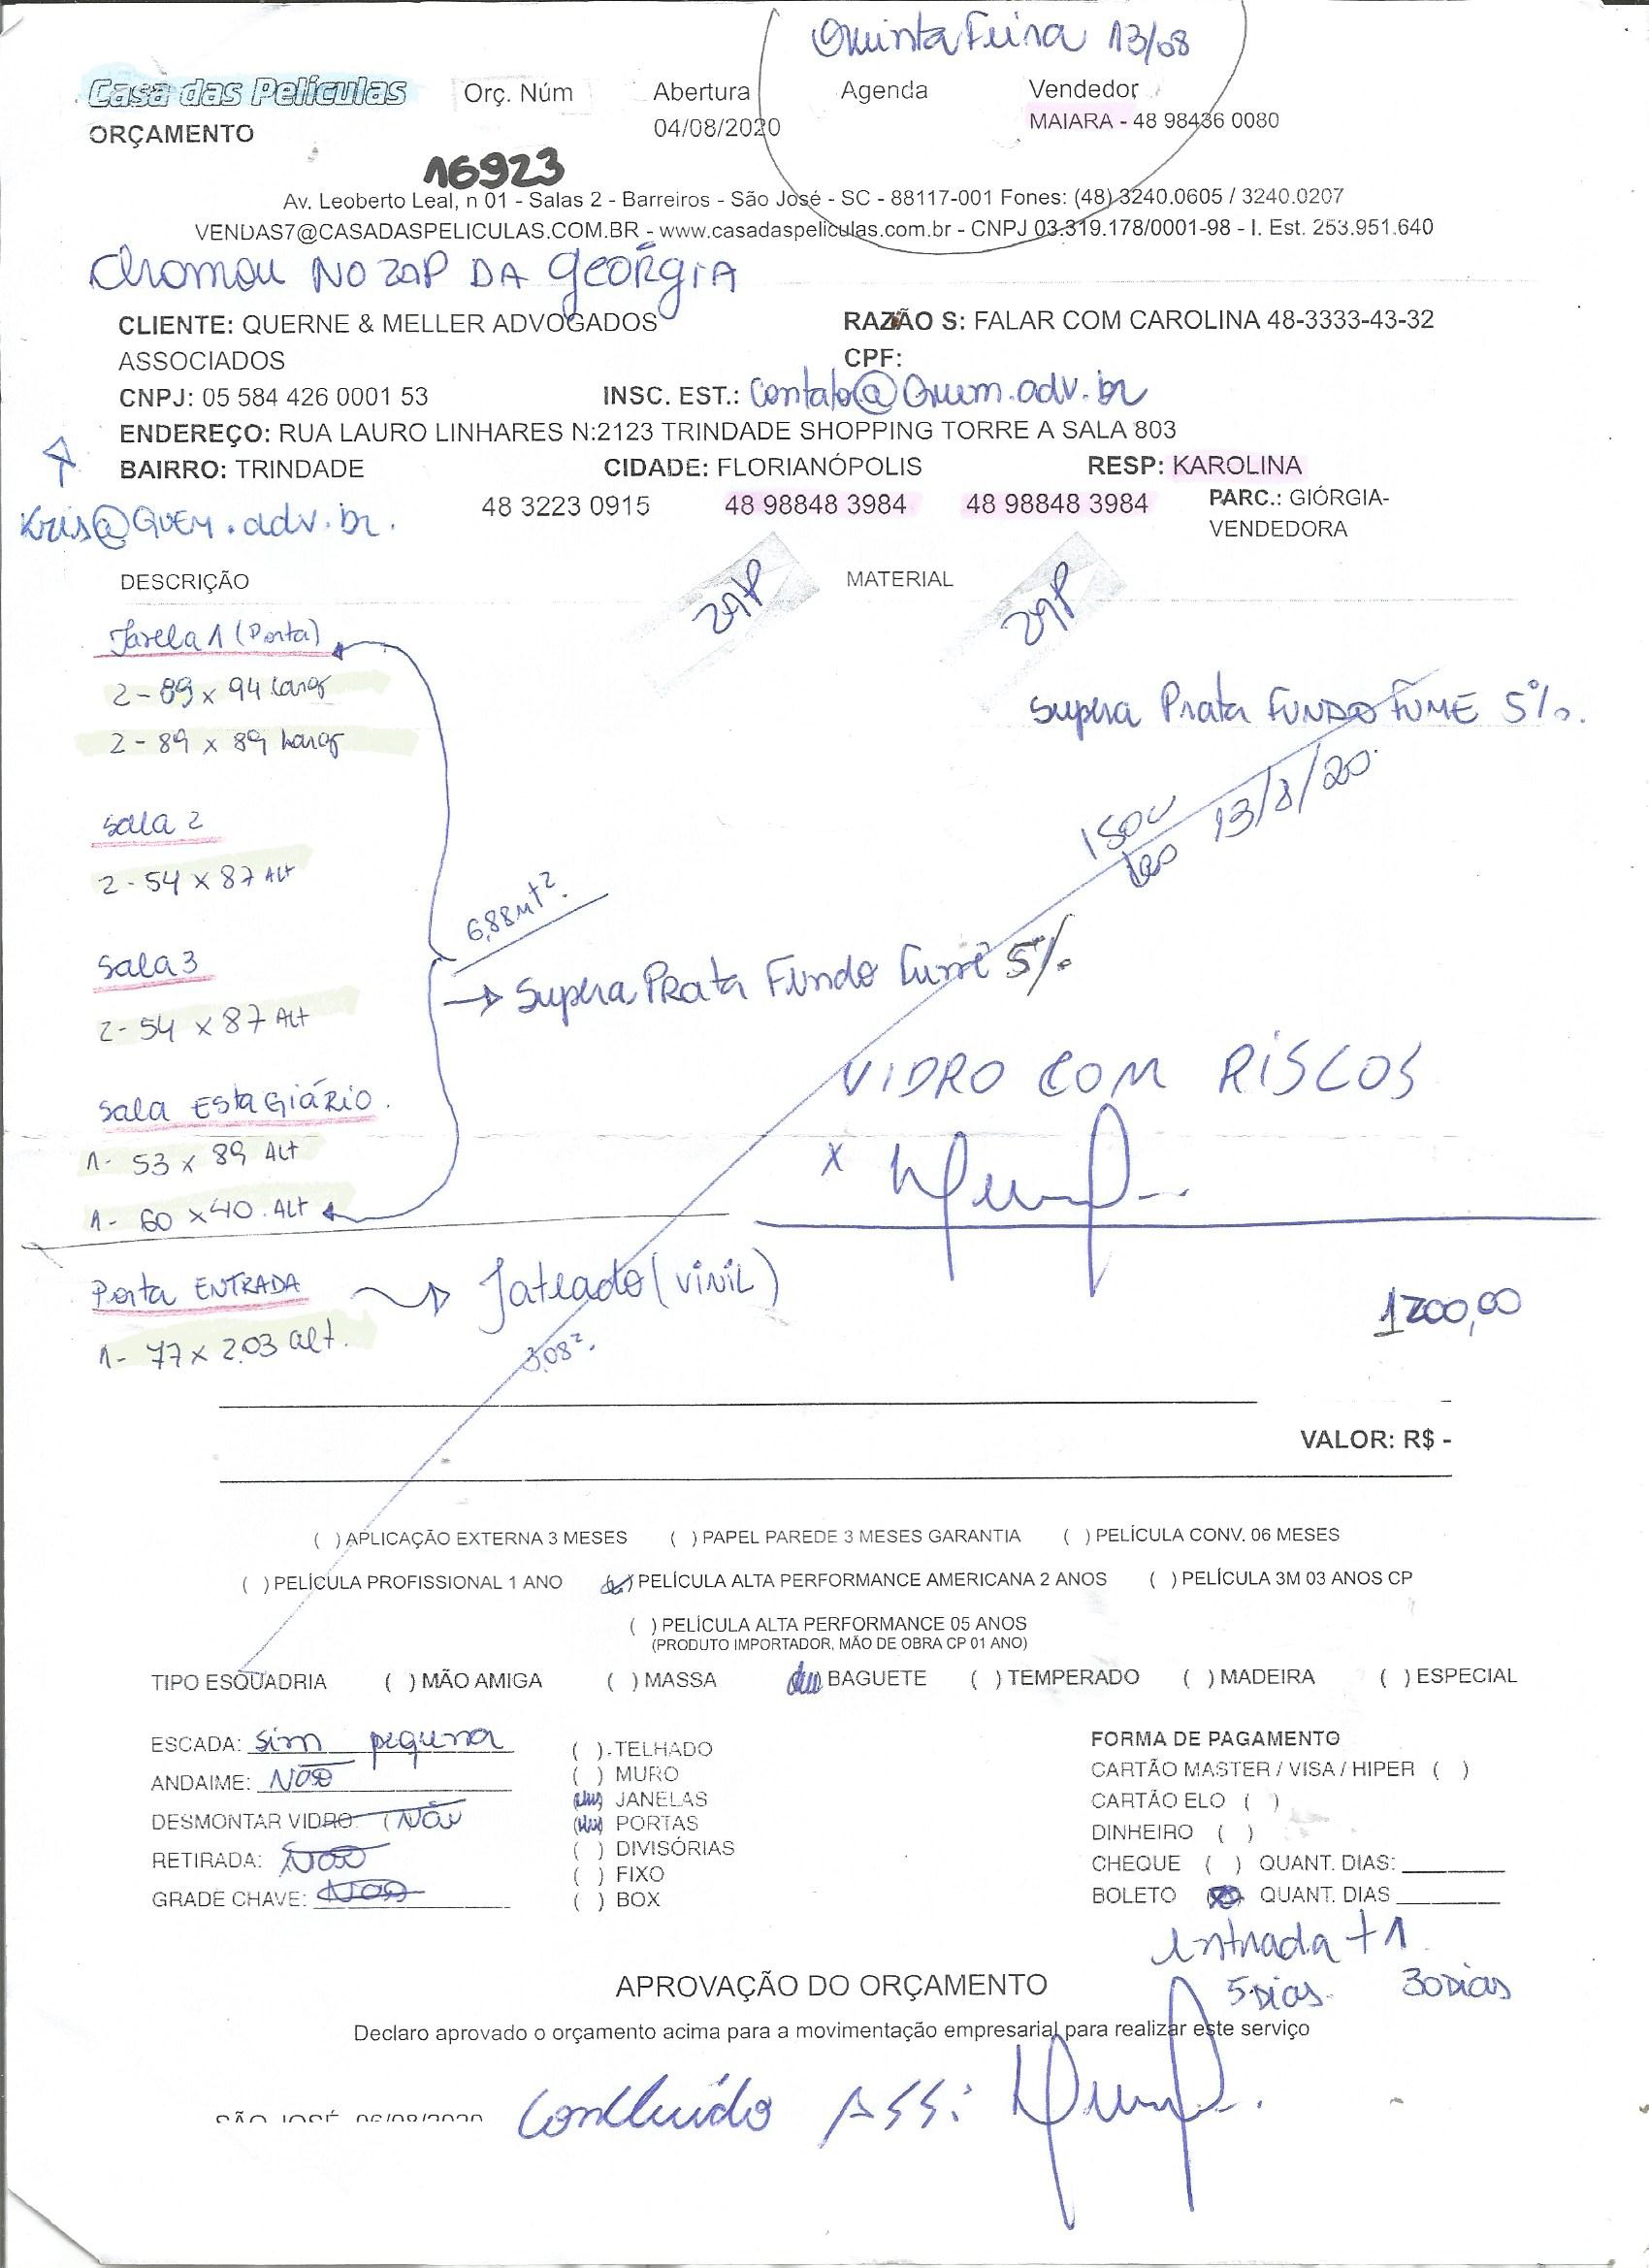 Quinta Feira 13/08
Casa das Películas Orç. Núm Abertura Agenda Vendedor
ORÇAMENTO 04/08/2020 MAIARA - 48 98436 0080
16923
Av. Leoberto Leal, n 01 - Salas 2 - Barreiros - São José - SC - 88117-001 Fones: (48) 3240.0605 / 3240.0207
VENDAS7@CASADASPELICULAS.COM.BR - www.casadaspeliculas.com.br - CNPJ 03.319.178/0001-98 - I. Est. 253.951.640
Chamou NO ZAP DA GEÓRGIA
CLIENTE: QUERNE & MELLER ADVOGADOS RAZÃO S: FALAR COM CAROLINA 48-3333-43-32
ASSOCIADOS CPF:
CNPJ: 05 584 426 0001 53 INSC. EST.: Contato@Quem.adv.br
ENDEREÇO: RUA LAURO LINHARES N:2123 TRINDADE SHOPPING TORRE A SALA 803
BAIRRO: TRINDADE CIDADE: FLORIANÓPOLIS RESP: KAROLINA
48 3223 0915 48 98848 3984 48 98848 3984 PARC.: GIÓRGIA-
Kris@QUEM.adv.br. VENDEDORA
DESCRIÇÃO ZAP MATERIAL ZAP
Janela 1 (Porta)
2 - 89 x 94 Larg Supera Prata FUNDO FUME 5%.
2 - 89 x 89 Larg
13/8/20
Sala 2
2 - 54 x 87 Alt
6,88mt².
Sala 3
→ Supera PRata Fundo Fumê 5%
2 - 54 x 87 Alt
VIDRO COM RISCOS
Sala EstaGiáRIO.
1 - 53 x 89 Alt X
1 - 60 x 40. Alt
Porta ENTRADA → Jateado (VINIL)
1200,00
1 - 77 x 2.03 alt. 3,08².
VALOR: R$ -
( ) APLICAÇÃO EXTERNA 3 MESES ( ) PAPEL PAREDE 3 MESES GARANTIA ( ) PELÍCULA CONV. 06 MESES
( ) PELÍCULA PROFISSIONAL 1 ANO ( ) PELÍCULA ALTA PERFORMANCE AMERICANA 2 ANOS ( ) PELÍCULA 3M 03 ANOS CP
( ) PELÍCULA ALTA PERFORMANCE 05 ANOS
(PRODUTO IMPORTADOR, MÃO DE OBRA CP 01 ANO)
TIPO ESQUADRIA ( ) MÃO AMIGA ( ) MASSA BAGUETE ( ) TEMPERADO ( ) MADEIRA ( ) ESPECIAL
ESCADA: Sim pequena
ANDAIME: Não
DESMONTAR VIDRO: Não
RETIRADA: Não
GRADE CHAVE: Não
( ) TELHADO
( ) MURO
( ) JANELAS
( ) PORTAS
( ) DIVISÓRIAS
( ) FIXO
( ) BOX
FORMA DE PAGAMENTO
CARTÃO MASTER / VISA / HIPER ( )
CARTÃO ELO ( )
DINHEIRO ( )
CHEQUE ( ) QUANT. DIAS:
BOLETO (X) QUANT. DIAS
entrada + 1
5 Dias. 30 Dias
APROVAÇÃO DO ORÇAMENTO
Declaro aprovado o orçamento acima para a movimentação empresarial para realizar este serviço
SÃO JOSÉ 06/08/2020 Concluído ASS: